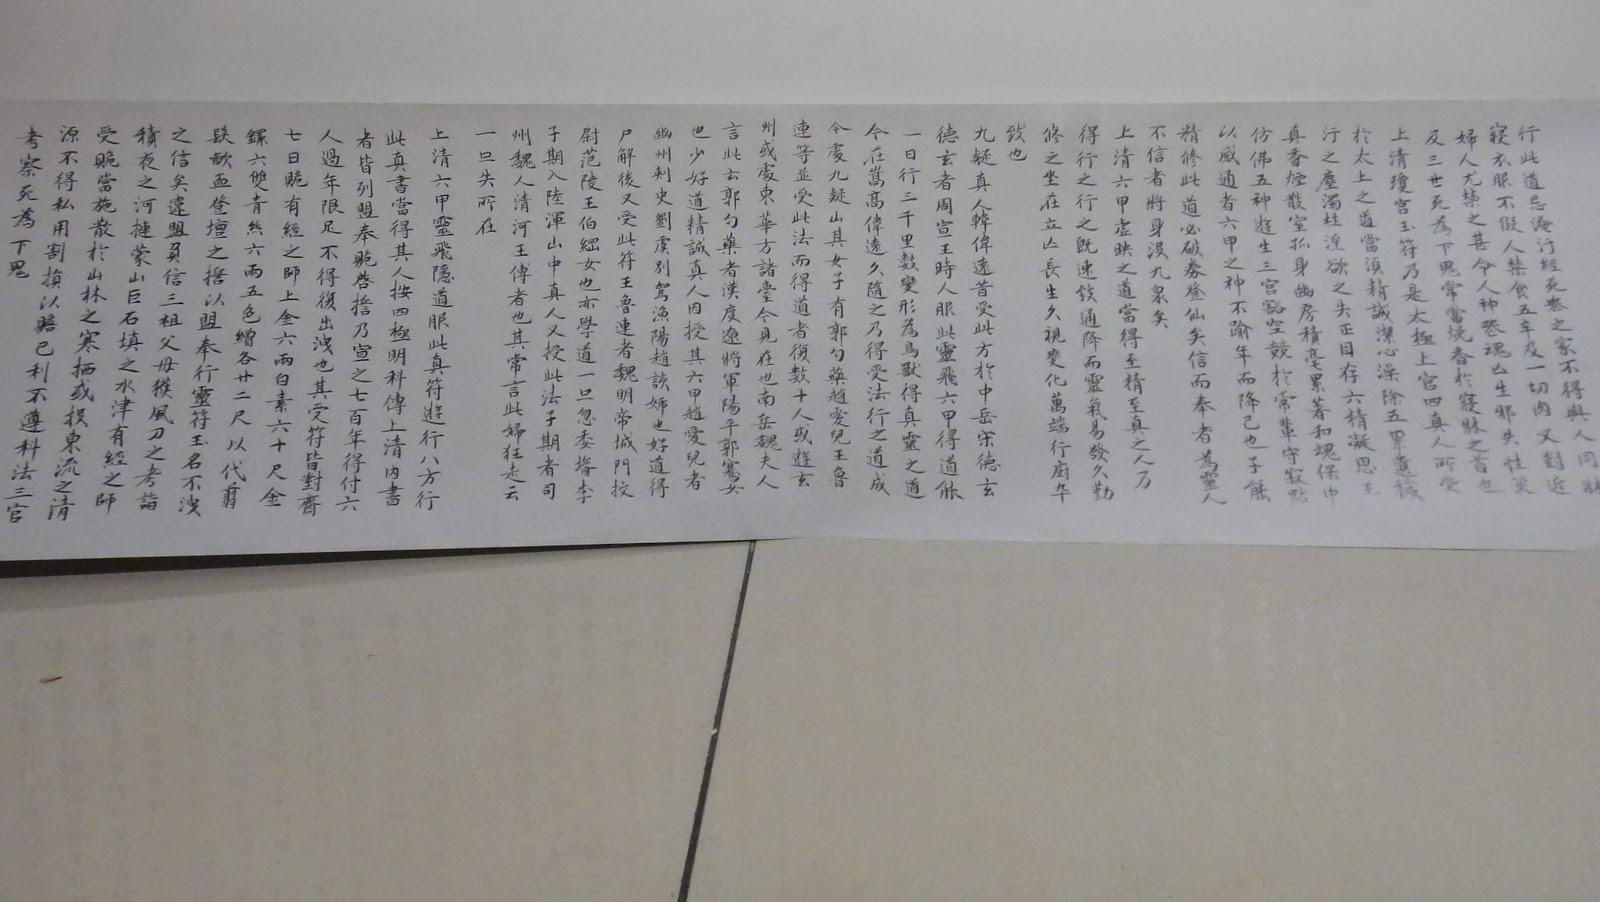 行此道忌淹汙經死喪之家不得與人同牀
寢衣服不假人禁食五辛及一切肉又對近
婦人尤禁之甚令人神喪魂亡生邪失性災
及三世死為下鬼常當燒香於寢牀之首也
上清瓊宮玉符乃是太極上宮四真人所受
於太上之道當須精誠潔心澡除五累遺穢
汙之塵濁杜淫欲之失正目存六精凝思玉
真香煙散室孤身幽房積毫累著和魂保中
仿佛五神遊生三宮豁空競於常輩守寂默
以感通者六甲之神不踰年而降己也子能
精修此道必破券登仙矣信而奉者為靈人
不信者將身沒九泉矣
上清六甲虛映之道當得至精至真之人乃
得行之行之既速致通降而靈氣易發久勤
修之坐在立亡長生久視變化萬端行廚卒
致也
九疑真人韓偉遠昔受此方於中岳宋德玄
德玄者周宣王時人服此靈飛六甲得道能
一日行三千里數變形為鳥獸得真靈之道
今在嵩高偉遠久隨之乃得受法行之道成
今處九疑山其女子有郭勺藥趙愛兒王魯
連等並受此法而得道者復數十人或遊玄
州或處東華方諸臺今見在也南岳魏夫人
言此云郭勺藥者漢度遼將軍陽平郭騫女
也少好道精誠真人因授其六甲趙愛兒者
幽州刺史劉虞別駕漁陽趙該姊也好道得
尸解後又受此符王魯連者魏明帝城門校
尉范陵王伯綱女也亦學道一旦忽委壻李
子期入陸渾山中真人又授此法子期者司
州魏人清河王傳者也其常言此婦狂走云
一旦失所在
上清六甲靈飛隱道服此真符遊行八方行
此真書當得其人按四極明科傳上清內書
者皆列盟奉贶啓誓乃宣之七百年得付六
人過年限足不得復出洩也其受符皆對齋
七日贶有經之師上金六兩白素六十尺金
鐶六雙青絲六兩五色繒各廿二尺以代翦
髮歃血登壇之誓以盟奉行靈符玉名不洩
之信矣違盟負信三祖父母獲風刀之考詣
積夜之河揵蒙山巨石填之水津有經之師
受贶當施散於山林之寒栖或投東流之清
源不得私用割損以贍己利不遵科法三官
考察死為下鬼